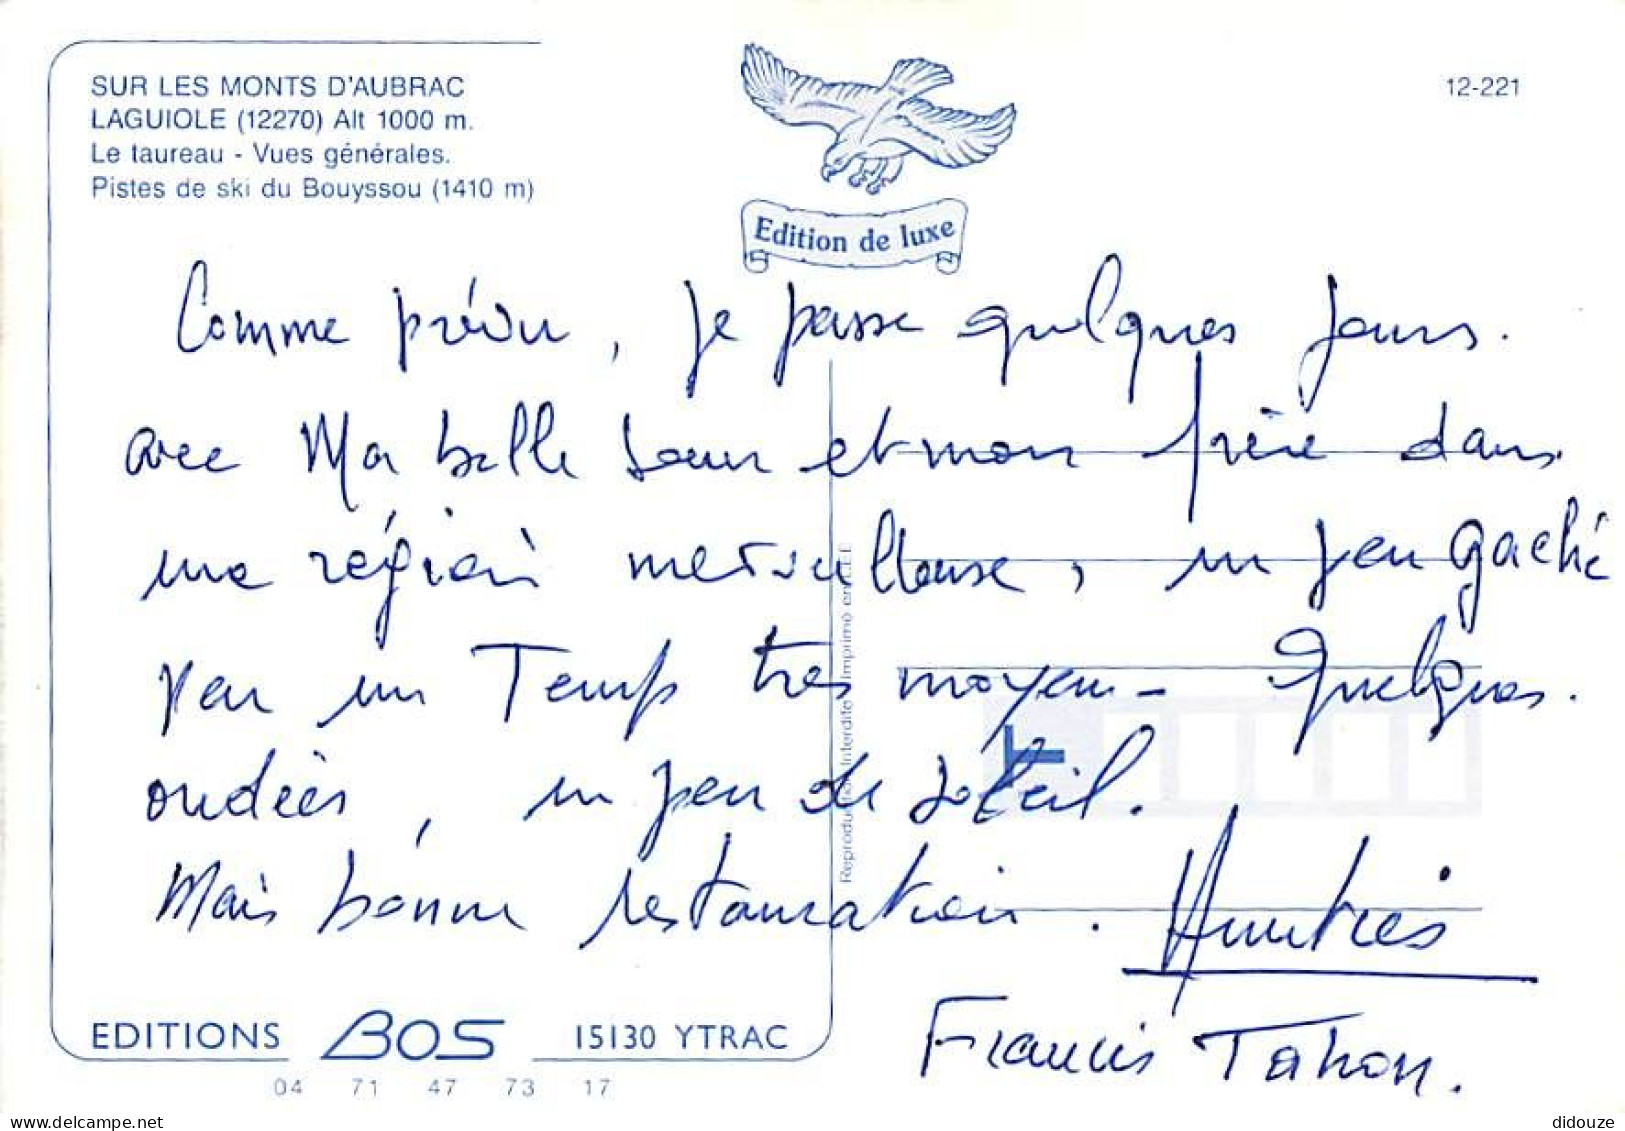 SUR LES MONTS D'AUBRAC
LAGUIOLE (12270) Alt 1000 m.
Le taureau - Vues générales.
Pistes de ski du Bouyssou (1410 m)
Edition de luxe
12-221
Comme prévu, je passe quelques jours.
avec Ma belle soeur et mon frère dans
une région merveilleuse, un peu gaché
par un Temps très moyen - Quelques.
ondées, un peu de soleil.
Mais bonne restauration. Amitiés
Francis Tahon.
Reproduction Interdite Imprimé en CEE
EDITIONS BOS 15130 YTRAC
04 71 47 73 17
delcampe.net
didouze